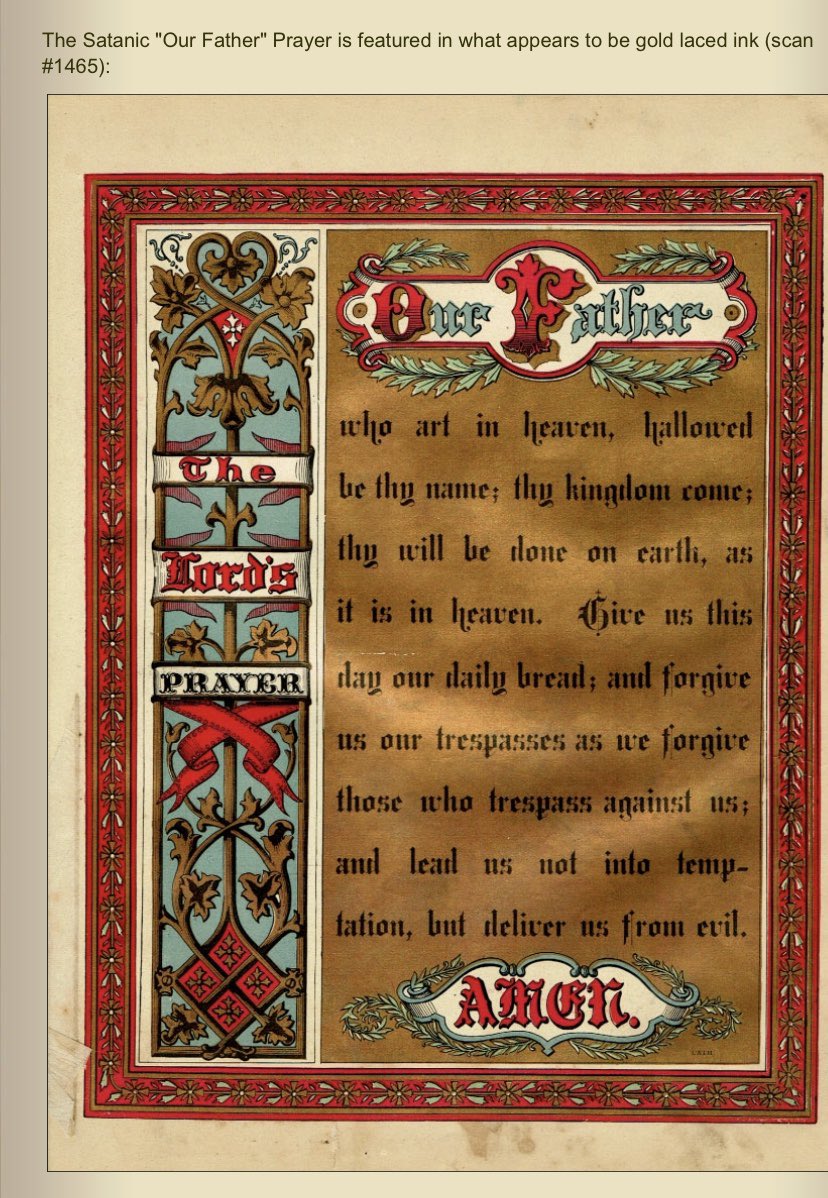 The Satanic "Our Father" Prayer is featured in what appears to be gold laced ink (scan
#1465):
The
Lord's
PRAYER
Our Father
who art in heaven, hallowed
be thy name; thy kingdom come;
thy will be done on earth, as
it is in heaven. Give us this
day our daily bread; and forgive
us our trespasses as we forgive
those who trespass against us;
and lead us not into temp-
tation, but deliver us from evil.
AMEN.